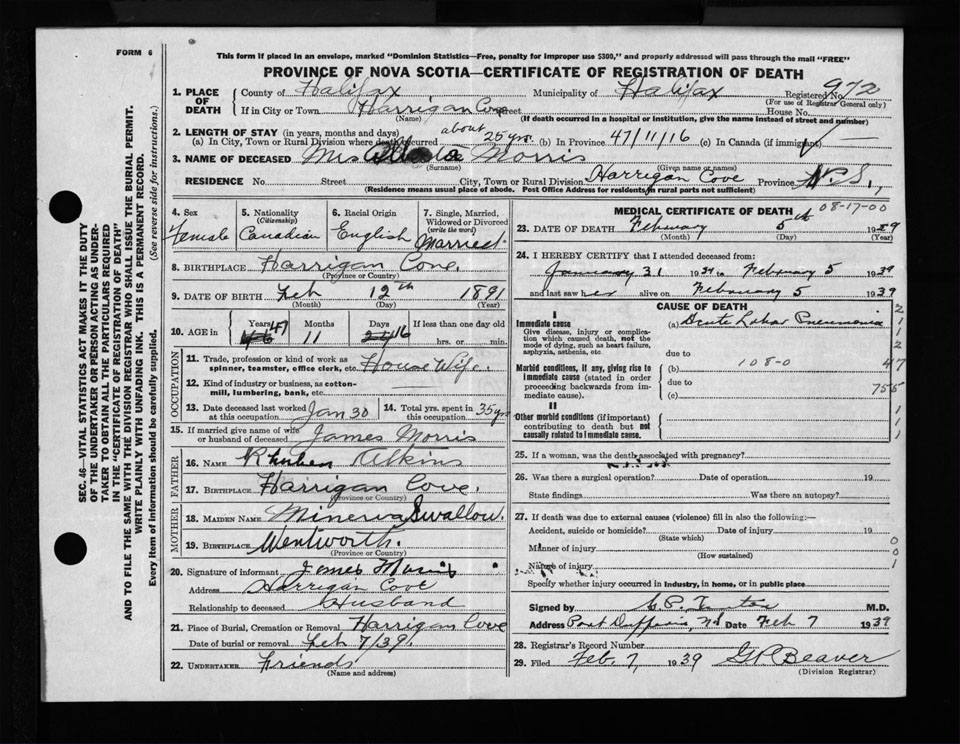 FORM 6
This form if placed in an envelope, marked "Dominion Statistics—Free, penalty for improper use $300," and properly addressed will pass through the mail "FREE"
PROVINCE OF NOVA SCOTIA—CERTIFICATE OF REGISTRATION OF DEATH
1. PLACE OF DEATH
County of Halifax Municipality of Halifax Registered No. 972
(For use of Registrar General only)
If in City or Town Harrigan Cove Street House No.
(Name) (If death occurred in a hospital or institution, give the name instead of street and number)
2. LENGTH OF STAY (in years, months and days)
(a) In City, Town or Rural Division where death occurred about 25 yrs. (b) In Province 47/11/16 (c) In Canada (if immigrant)
3. NAME OF DECEASED Mrs Morris
(Surname) (Given name or names)
RESIDENCE No. Street City, Town or Rural Division Harrigan Cove Province N.S.,
(Residence means usual place of abode. Post Office Address for residents in rural parts not sufficient)
4. Sex Female
5. Nationality (Citizenship) Canadian
6. Racial Origin English
7. Single, Married, Widowed or Divorced (write the word) Married
8. BIRTHPLACE Harrigan Cove.
(Province or Country)
9. DATE OF BIRTH Feb 12th 1891
(Month) (Day) (Year)
10. AGE in Years 47 Months 11 Days 16 If less than one day old hrs. or min.
OCCUPATION
11. Trade, profession or kind of work as spinner, teamster, office clerk, etc. House Wife.
12. Kind of industry or business, as cotton-mill, lumbering, bank, etc.
13. Date deceased last worked at this occupation Jan 30
14. Total yrs. spent in this occupation 35 yrs
15. If married give name of wife or husband of deceased James Morris
FATHER
16. NAME Rhuben Atkins
17. BIRTHPLACE Harrigan Cove.
(Province or Country)
MOTHER
18. MAIDEN NAME Minerva Swallow.
19. BIRTHPLACE Wentworth.
(Province or Country)
20. Signature of informant James Morris
Address Harrigan Cove
Relationship to deceased Husband
21. Place of Burial, Cremation or Removal Harrigan Cove
Date of burial or removal Feb 7/39.
22. UNDERTAKER Friends
(Name and address)
MEDICAL CERTIFICATE OF DEATH 08-17-00
23. DATE OF DEATH February 5th 1939
(Month) (Day) (Year)
24. I HEREBY CERTIFY that I attended deceased from:
January 31 1939 to February 5 1939
and last saw her alive on February 5 1939
CAUSE OF DEATH
I
Immediate cause
Give disease, injury or complication which caused death, not the mode of dying, such as heart failure, asphyxia, asthenia, etc
(a) Acute Lobar Pneumonia
due to
Morbid conditions, if any, giving rise to immediate cause (stated in order proceeding backwards from immediate cause).
(b) 108-0
due to
(c)
II
Other morbid conditions (if important) contributing to death but not causally related to immediate cause.
2
1
1
2
47
755
1
1
1
25. If a woman, was the death associated with pregnancy?
26. Was there a surgical operation? Date of operation 19
State findings Was there an autopsy?
27. If death was due to external causes (violence) fill in also the following:—
Accident, suicide or homicide? Date of injury 19
(State which)
Manner of injury 0
(How sustained) 0
Nature of injury 1
Specify whether injury occurred in industry, in home, or in public place
Signed by M.D.
Address Port Dufferin, NS Date Feb 7 1939
28. Registrar's Record Number
29. Filed Feb. 7 1939 G R Beaver
(Division Registrar)
SEC. 46—VITAL STATISTICS ACT MAKES IT THE DUTY
OF THE UNDERTAKER OR PERSON ACTING AS UNDER-
TAKER TO OBTAIN ALL THE PARTICULARS REQUIRED
IN THE "CERTIFICATE OF REGISTRATION OF DEATH"
AND TO FILE THE SAME WITH THE DIVISION REGISTRAR WHO SHALL ISSUE THE BURIAL PERMIT.
WRITE PLAINLY WITH UNFADING INK. THIS IS A PERMANENT RECORD.
Every item of information should be carefully supplied. (See reverse side for instructions.)